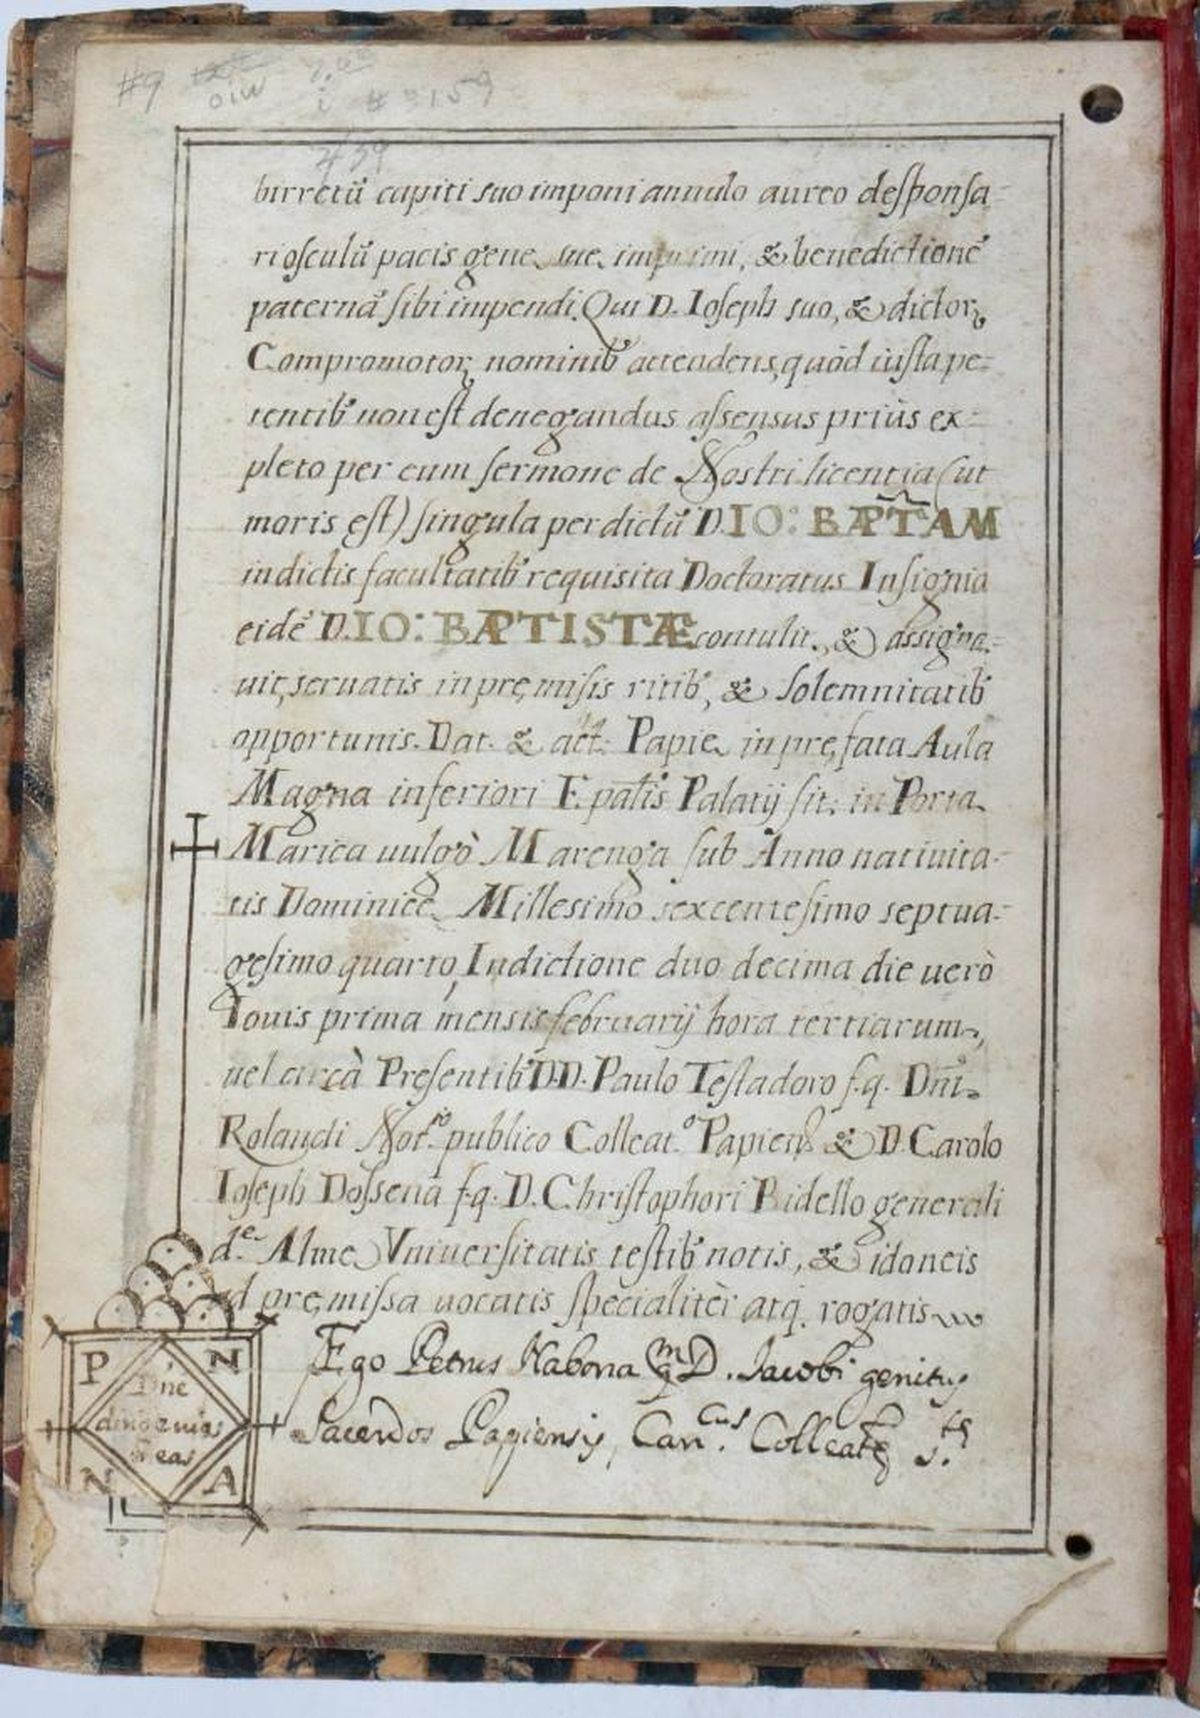 #9
oiw i # 3159
439
birretũ capiti suo imponi annulo aureo desponsa-
ri osculũ pacis gene sue imprimi, & benedictionẽ
paternã sibi impendi. Qui D. Ioseph suo, & dictorꝝ
Compromotorꝝ nominib' attendens, quòd iusta pe-
tentib' non est denegandus assensus priùs ex-
pleto per eum sermone de Nostri licentia (ut
moris est) singula per dictũ D. IO: BAPTAM
in dictis facultatib' requisita Doctoratus Insignia
eidẽ D. IO: BAPTISTÆ contulit, & assigna-
uit, seruatis in pręmisis ritib', & solemnitatib'
opportunis. Dat. & act. Papie in pręfata Aula
Magna inferiori Epalis Palatij sit. in Porta
Marica uulgò Marenga sub Anno natiuita-
tis Dominicę Millesimo sexcentesimo septua-
gesimo quarto, Indictione duodecima die uerò
Iouis prima mensis februarij hora tertiarum,
uel circà Presentib' D.D. Paulo Testadoro f.q. Dñi
Rolandi Not.ro publico Colleat.o Papiens & D. Carolo
Ioseph Dossena f.q. D. Christophori Bidello generali
d.e Alme Vniuersitatis testib' notis, & idoneis
ad pręmissa uocatis specialitèr atq. rogatis
Ego Petrus Nabona qm D. Iacobi genitus
Sacerdos Papiensis, Can.cus Colleat
P N
Dñe
dirige vias
meas
N A